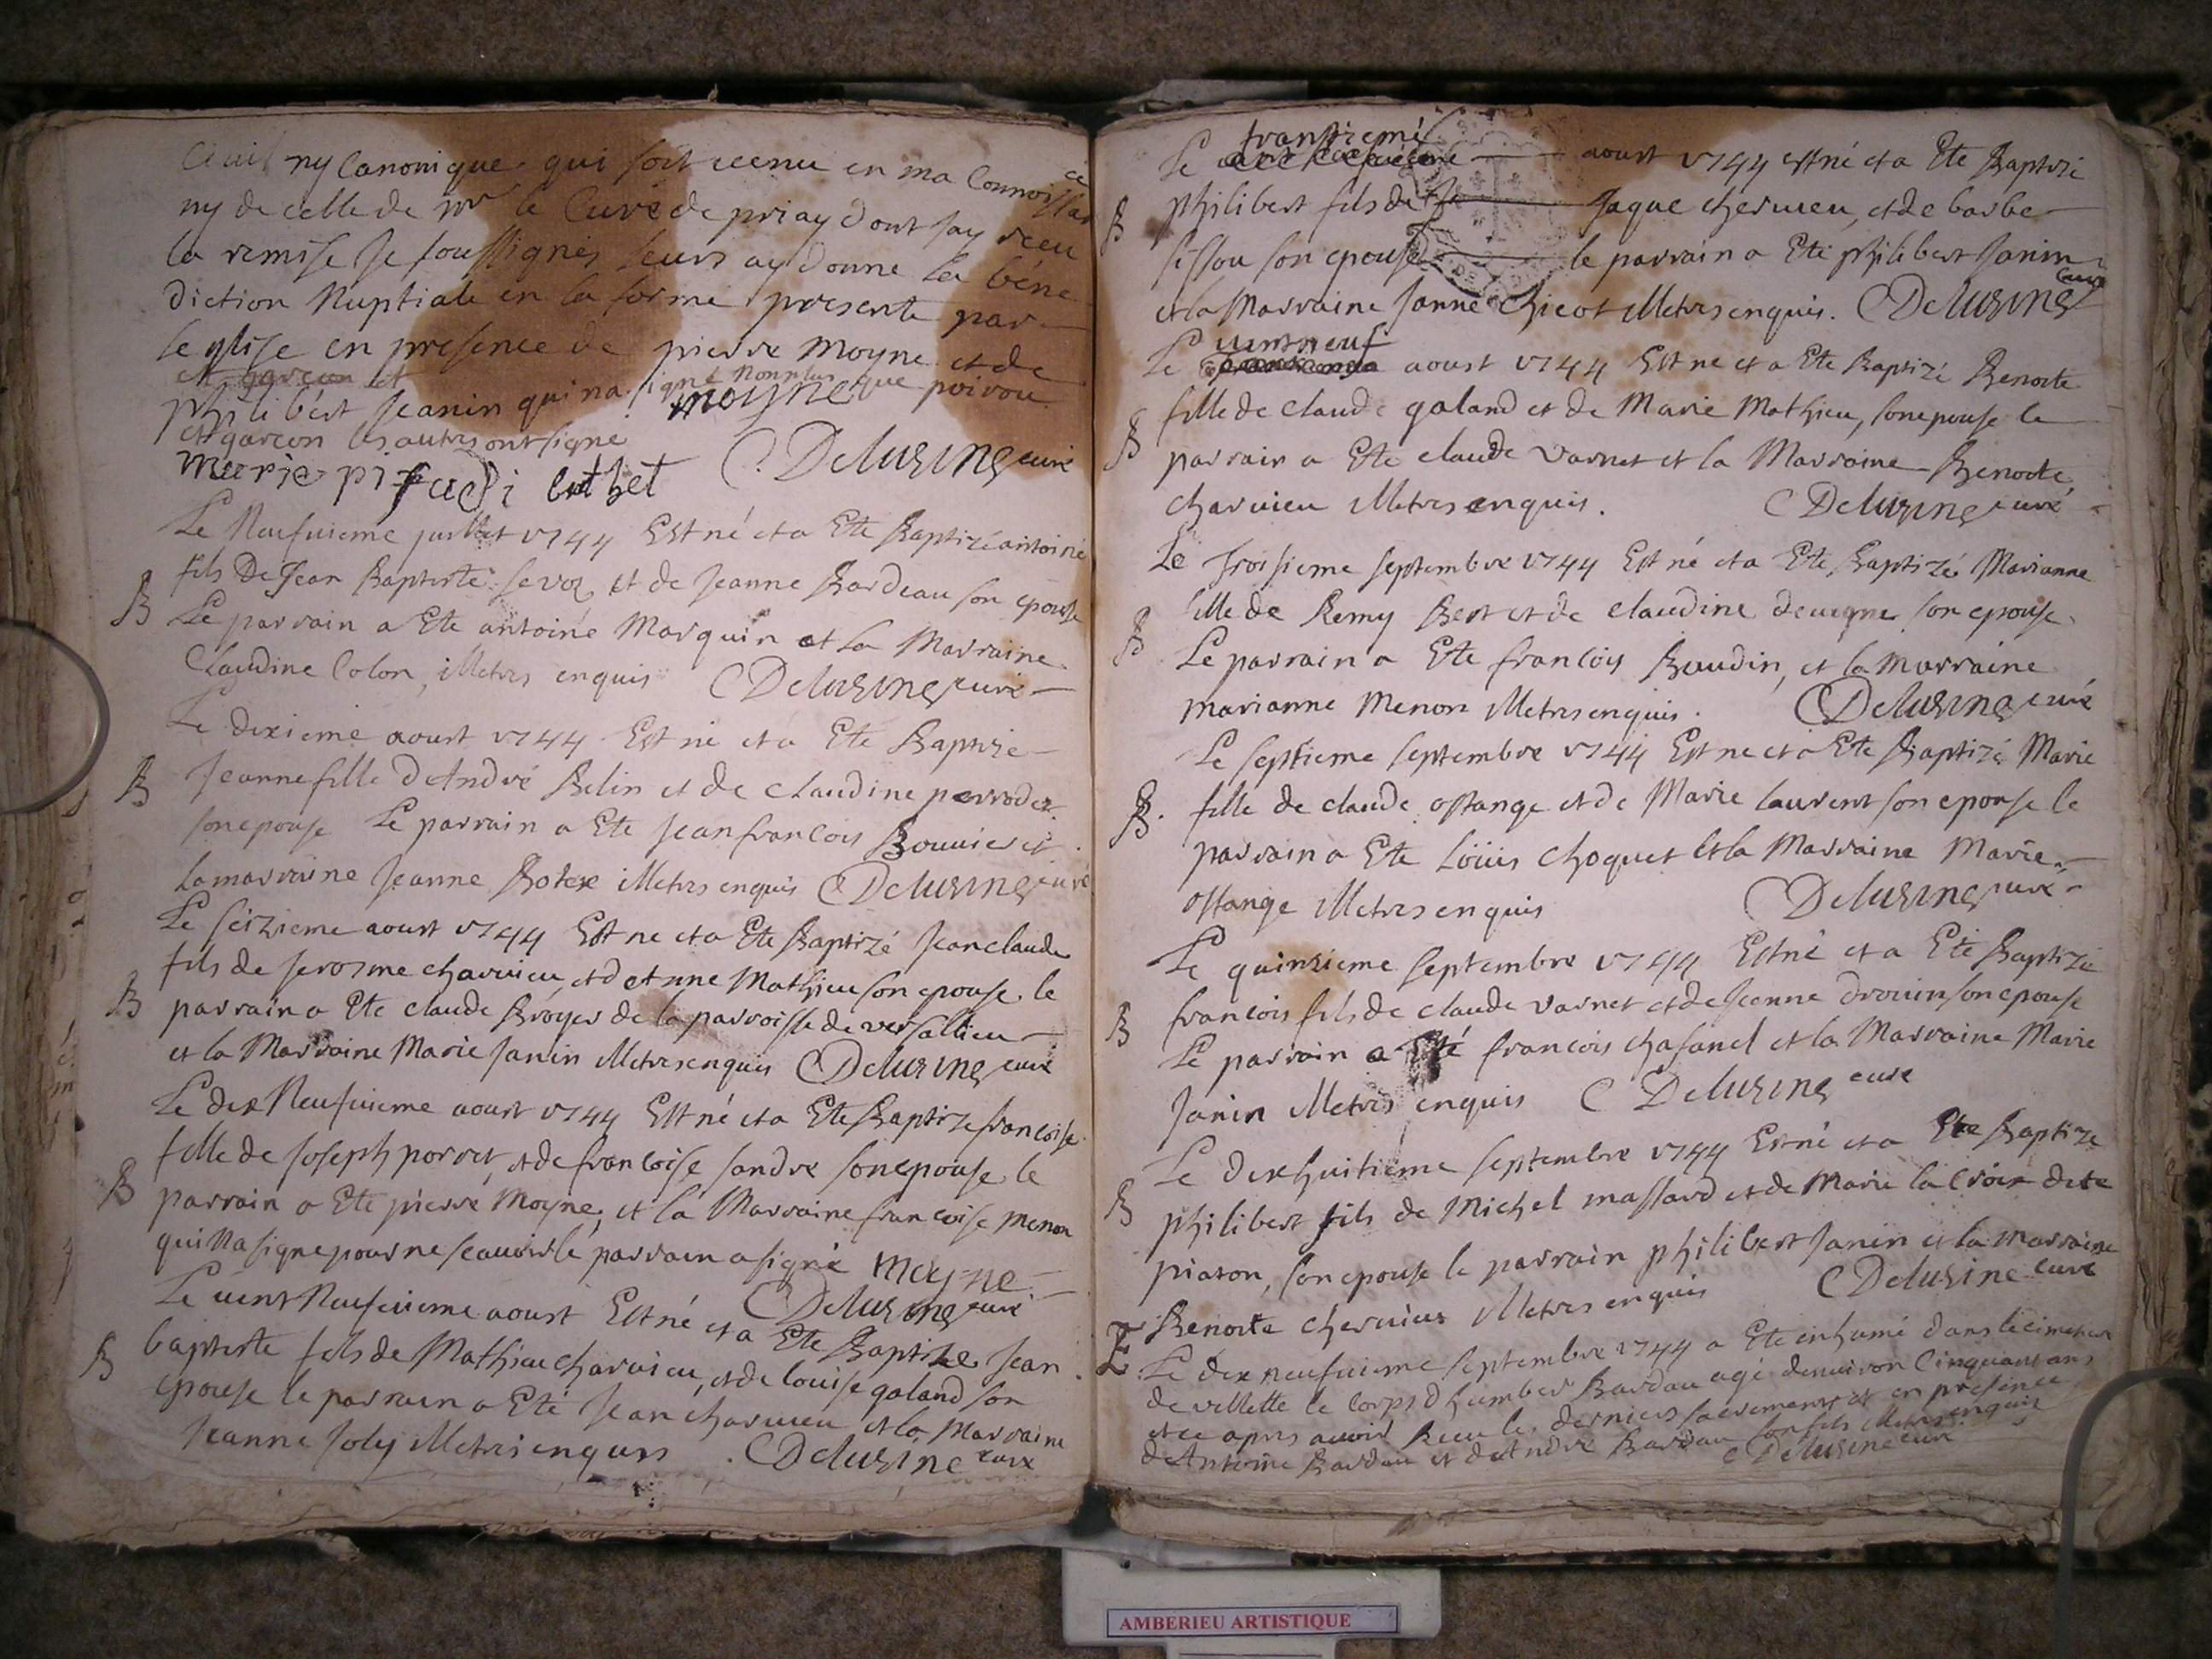 Civil ny Canonique qui soit venu en ma Connoissance
ny de celle de mr le Curé de priay dont jay receu
la remise Je soussignés leurs ay donne la béné
diction Nuptiale en la forme presente par
leglise en presence de pierre moyne et de
philibért Jeanin qui na signé Nonplus que
moyne
garcon les autres ont signé
Delusine curé
Le Neufvieme juillet 1744 Est né et a Ete Baptizé antoine
fils De Jean Baptiste et de Jeanne Bardeau son epouse
B Le parrain a Ete antoine Marquin et la Marraine
Claudine Colon, illetres enquis Delusine curé
Le dixieme aoust 1744 Est né et a Ete Baptizé
B Jeanne fille d'André Belin et de Claudine perrodet
son epouse Le parrain a Ete Jean francois Bouvier et
la marraine Jeanne illetres enquis Delusine curé
Le seizieme aoust 1744 Est ne et a Ete Baptizé Jean claude
fils de Jerosme charvieu, et d'Anne Mathieu son epouse le
B parrain a Ete claude Broyer de la parroisse de versallieu
et la Marraine Marie Janin illetres enquis Delusine curé
Le dix Neufvieme aoust 1744 Est né et a Ete Baptize francoise
fille de Joseph porret, et de francoise Jandre son epouse le
B parrain a Ete pierre Moyne, et la Marraine francoise Menon
qui Na signe pour ne scavoir le parrain a signé moyne
Delusine curé
Le vint Neufvieme aoust Est né et a Ete Baptize Jean
B baptiste fils de Mathieu charvieu, et de louise galand son
epouse le parrain a Eté Jean charvieu et la Marraine
Jeanne Joly illetres enquis Delusine curé
trantieme
Le aoust 1744 est né et a Ete Baptizé
B philibert fils de Jaque chervieu, et de barbe
son epouse le parrain a Eté philibert Janin
et la Marraine Janne Chicot illetres enquis. Delusine curé
vintneuf
Le aoust 1744 Est ne et a Ete Baptizé Benoite
B fille de claude galand et de Marie Mathieu, son epouse le
parrain a Ete claude varnet et la Marraine Benoite
charvieu illetres enquis. Delusine curé
Le troisieme septembre 1744 Est né et a Ete Baptizé Marianne
B fille de Remy Bert et de claudine devigne son epouse
Le parrain a Ete francois Baudin, et la marraine
marianne Menon illetres enquis. Delusine curé
Le septieme septembre 1744 Est ne et a Ete Baptizé Marie
B. fille de claude ostange et de Marie laurent son epouse le
parrain a Ete Loüis choquet et la Marraine Marie
ostange illetres enquis Delusine curé
Le quinzieme septembre 1744 Est né et a Eté Baptizé
B francois fils de claude varnet et de Jeanne drouin son epouse
Le parrain a Eté francois chasanel et la Marraine Marie
Janin illetres enquis Delusine curé
Le dixhuitieme septembre 1744 Est né et a Ete Baptize
B philibert fils de Michel massard et de Marie la croix dite
piaton, son epouse le parrain philibert Janin et la marraine
Benoite chervieu illetres enquis Delusine curé
E Le dix neufvieme septembre 1744 a Ete inhumé dans le cimetiere
de villette le corps d'humber Bardau agé denviron Cinquant ans
et ce apres avoir Receu les derniers sacrements et en presence
d'Antoine Bardau et d'André Bardau son fils illetres enquis
Delusine curé
AMBERIEU ARTISTIQUE